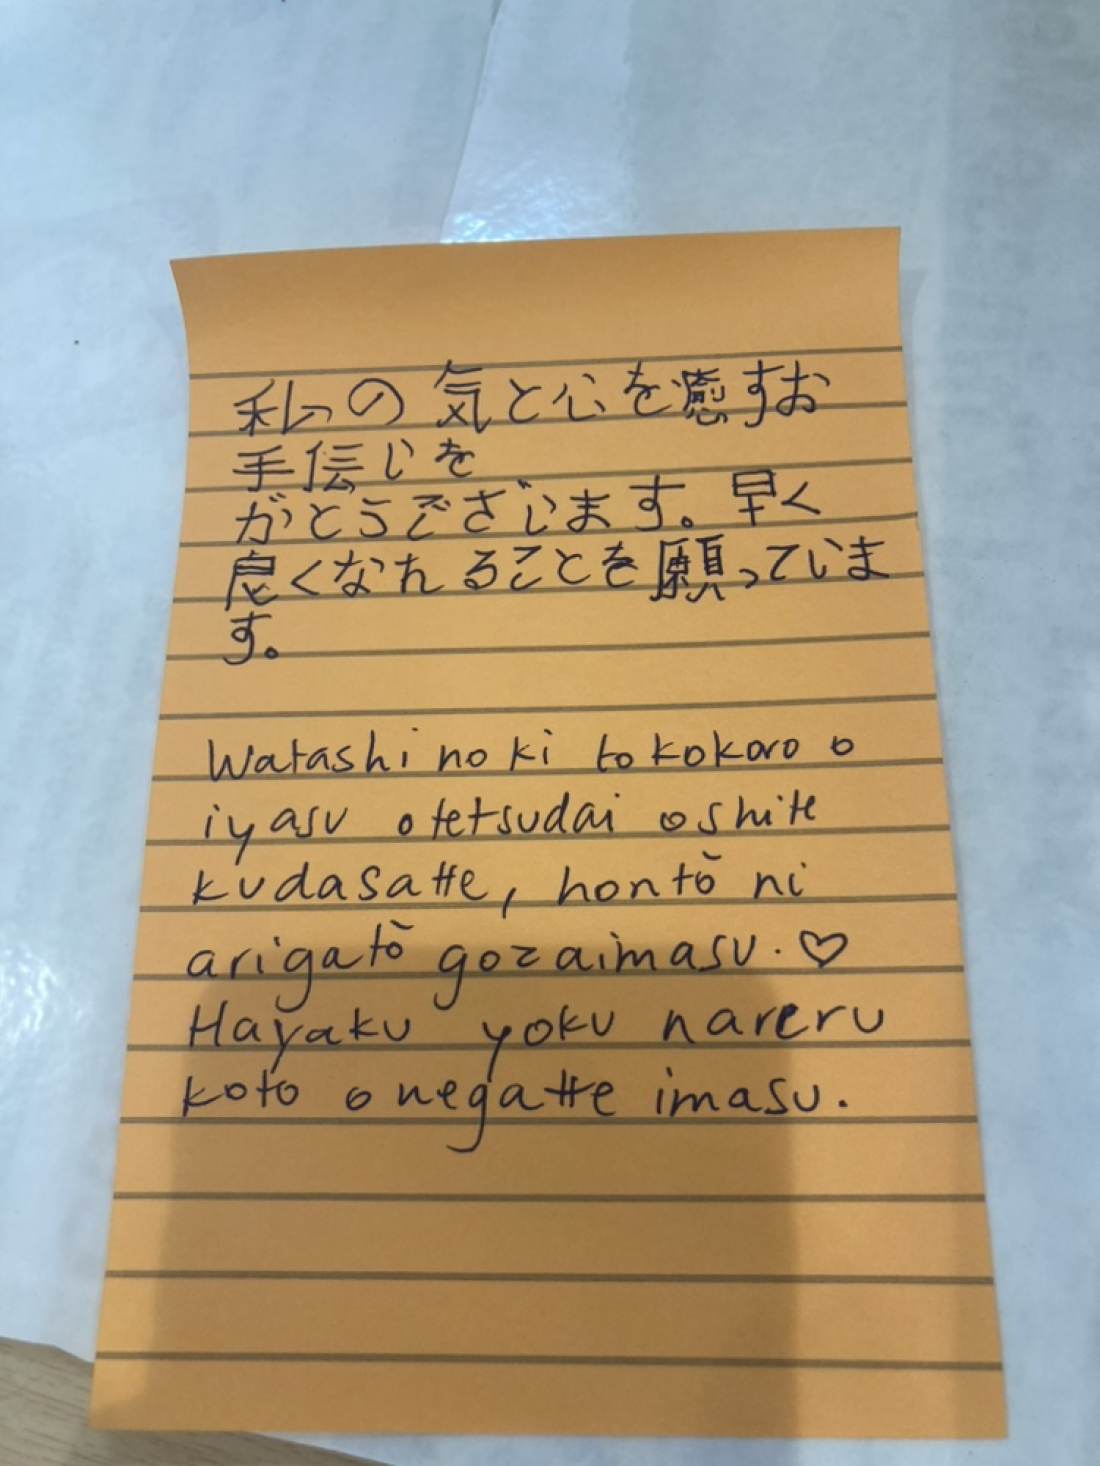 私の気と心を癒すお
手伝いを
がとうございます。早く
良くなれることを願っていま
す。
Watashi no ki to kokoro o
iyasu otetsudai o shite
kudasatte, hontō ni
arigatō gozaimasu. ♡
Hayaku yoku nareru
koto o negatte imasu.